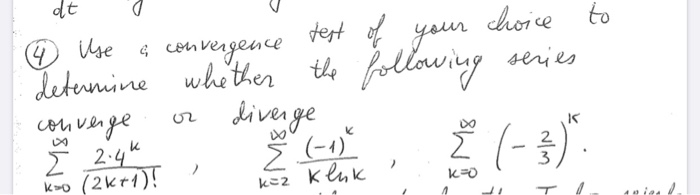 dt
④ Use a convergence test of your choice to
determine whether the following series
converge or diverge
∞ ∑ k=0 2·4^k / (2k+1)! , ∞ ∑ k=2 (-1)^k / k ln k , ∞ ∑ k=0 (-2/3)^k .